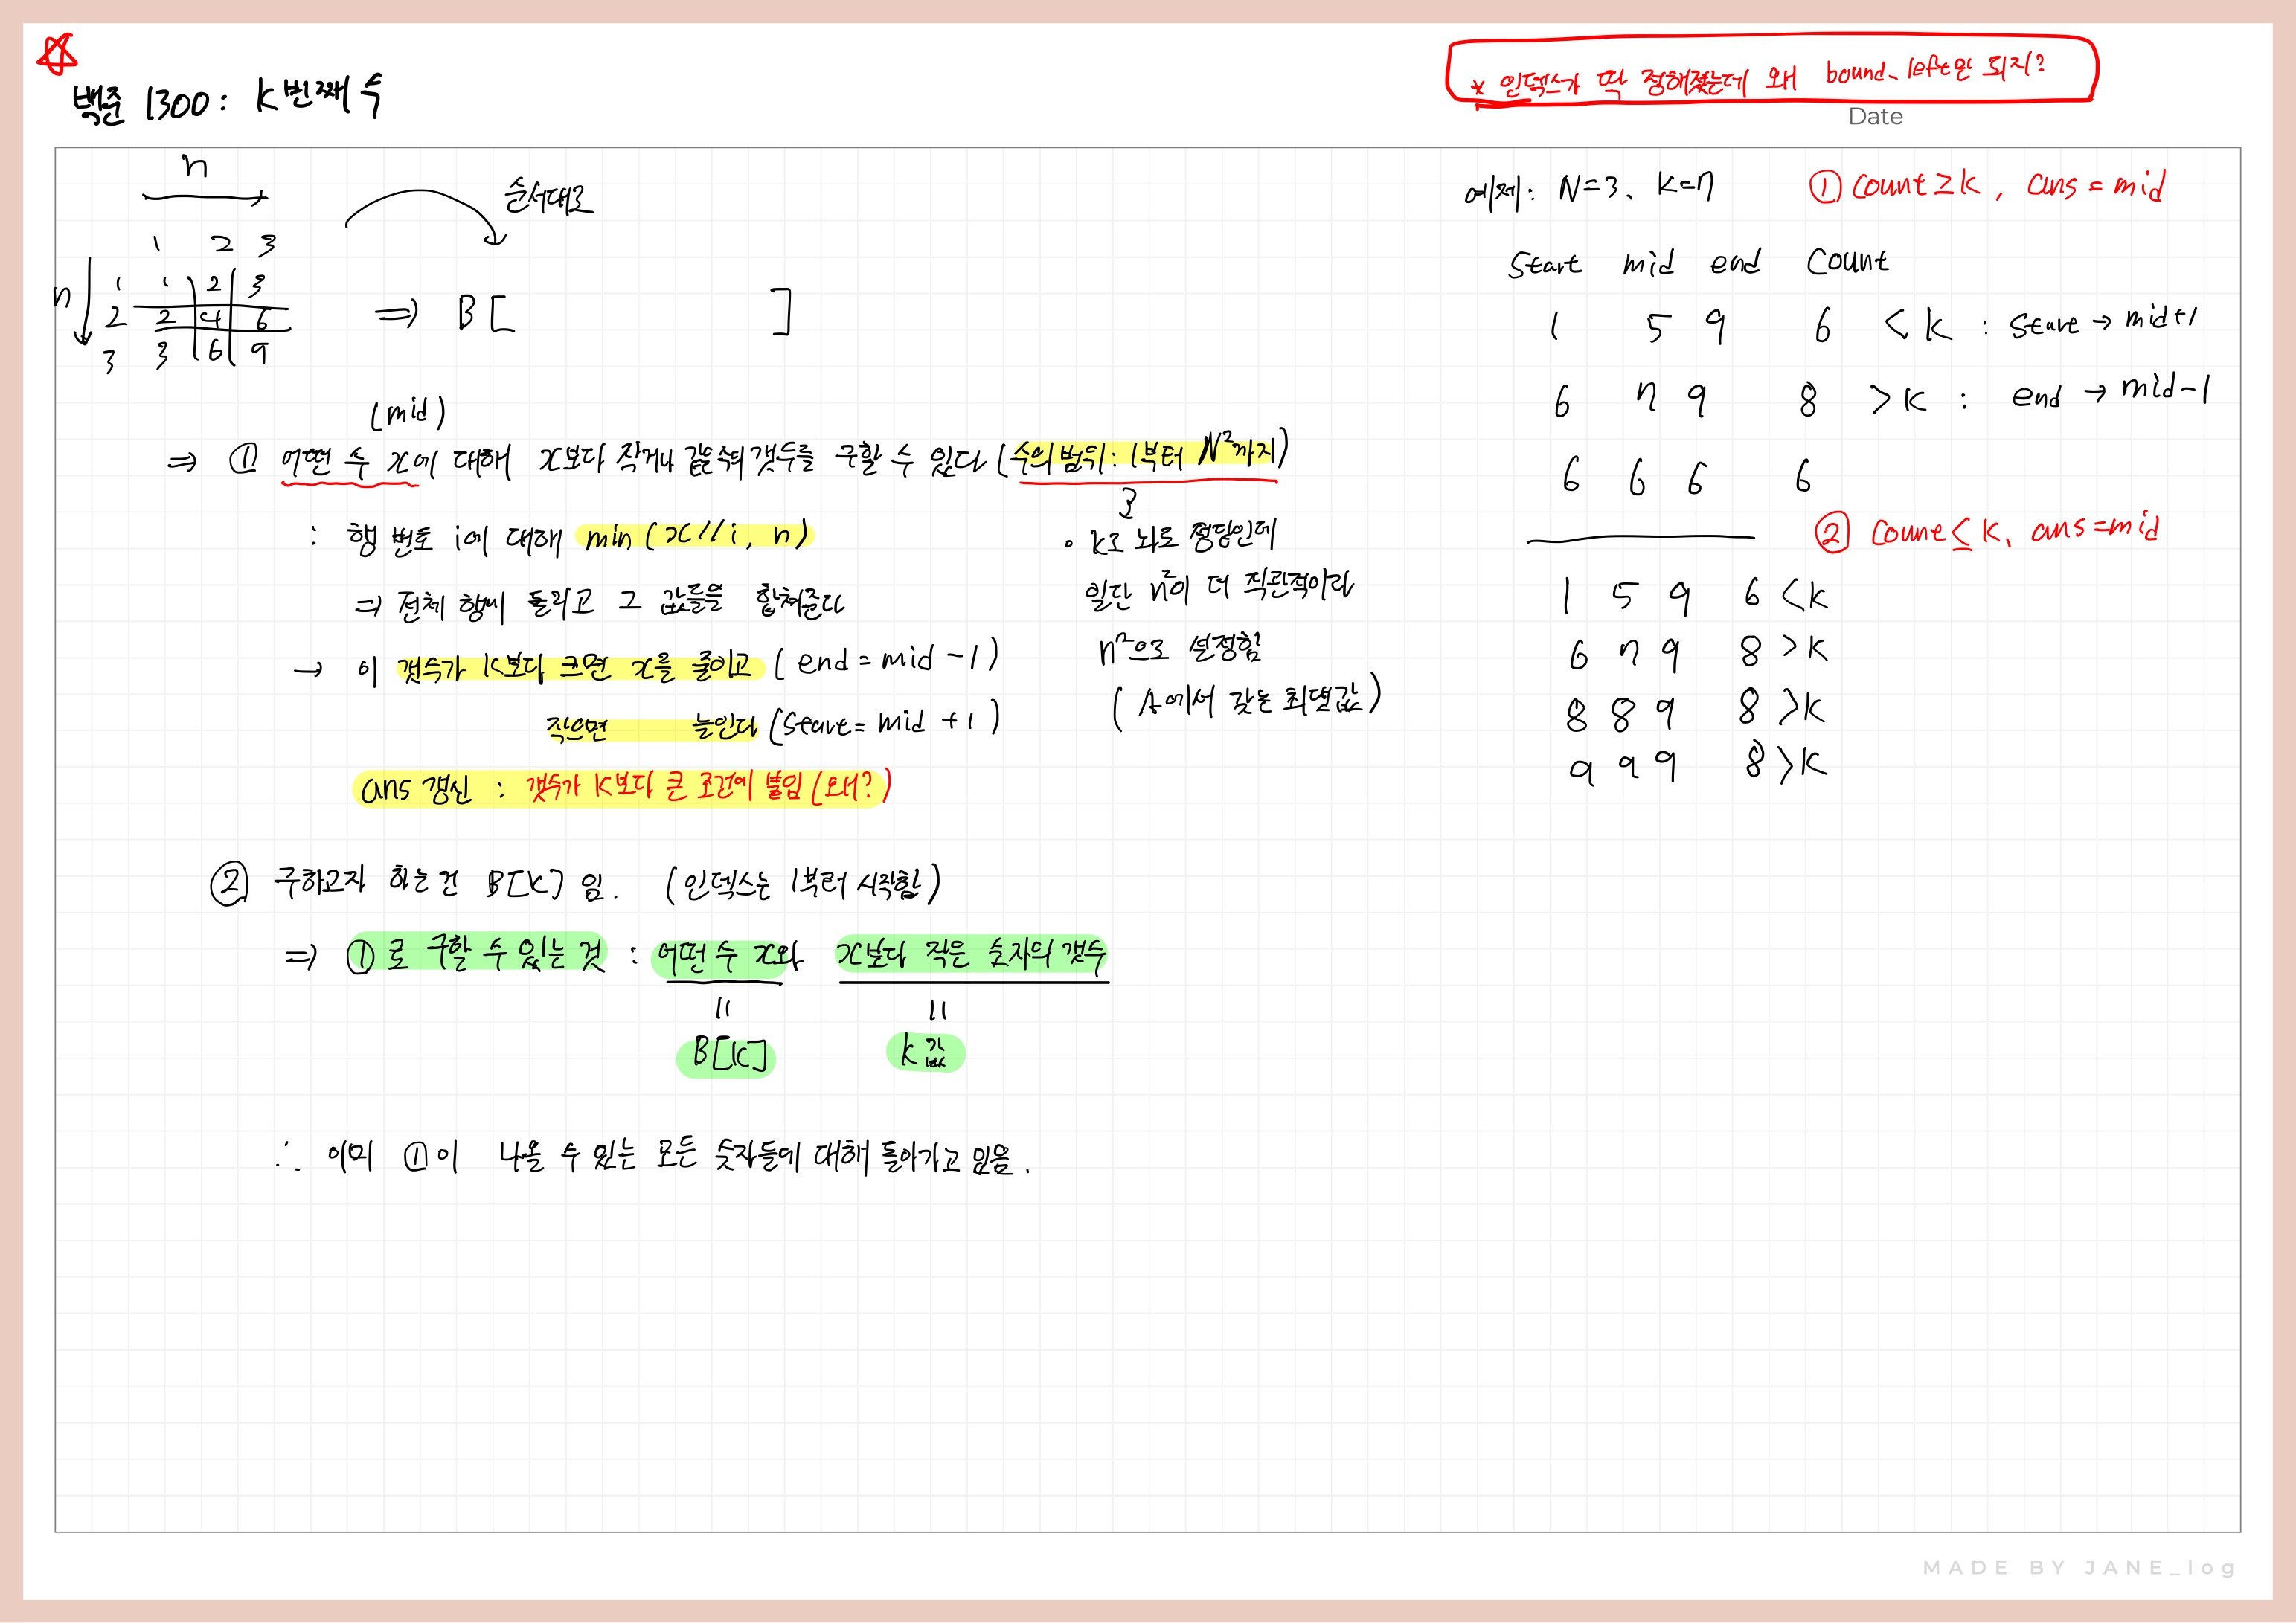 백준 1300: K번째 수
* 인덱스가 딱 정해졌는데 왜 bound_left만 되지?
Date
n
순서대로
1 2 3
n
1 1 2 3
2 2 4 6
3 3 6 9
⇒ B[ ]
(mid)
⇒ ① 어떤 수 x에 대해 x보다 작거나 같은 수의 갯수를 구할 수 있다 (수의 범위: 1부터 N²까지)
: 행 번호 i에 대해 min (x//i, n)
⇒ 전체 행에 돌리고 그 값들을 합쳐준다
→ 이 갯수가 K보다 크면 x를 줄이고 (end = mid - 1)
작으면 늘인다 (start = mid + 1)
ans 갱신 : 갯수가 K보다 큰 조건에 붙임 (왜?)
• K로 놔도 정답인데
일단 n²이 더 직관적이라
n²으로 설정함
(A에서 갖는 최댓값)
② 구하고자 하는 건 B[K] 임. (인덱스는 1부터 시작함)
⇒ ①로 구할 수 있는 것 : 어떤 수 x와 x보다 작은 숫자의 갯수
= =
B[K] k값
∴ 이미 ①이 나올 수 있는 모든 숫자들에 대해 돌아가고 있음.
예제: N=3, K=7 ① count ≥ k, ans = mid
start mid end count
1 5 9 6 < K : start → mid+1
6 7 9 8 > K : end → mid-1
6 6 6 6
② count ≤ K, ans = mid
1 5 9 6 < K
6 7 9 8 > K
8 8 9 8 > K
9 9 9 8 > K
MADE BY JANE_log